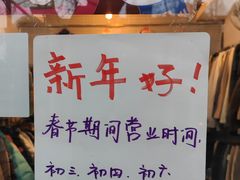 新年好!
春节期间营业时间,
初三、初四、初六、